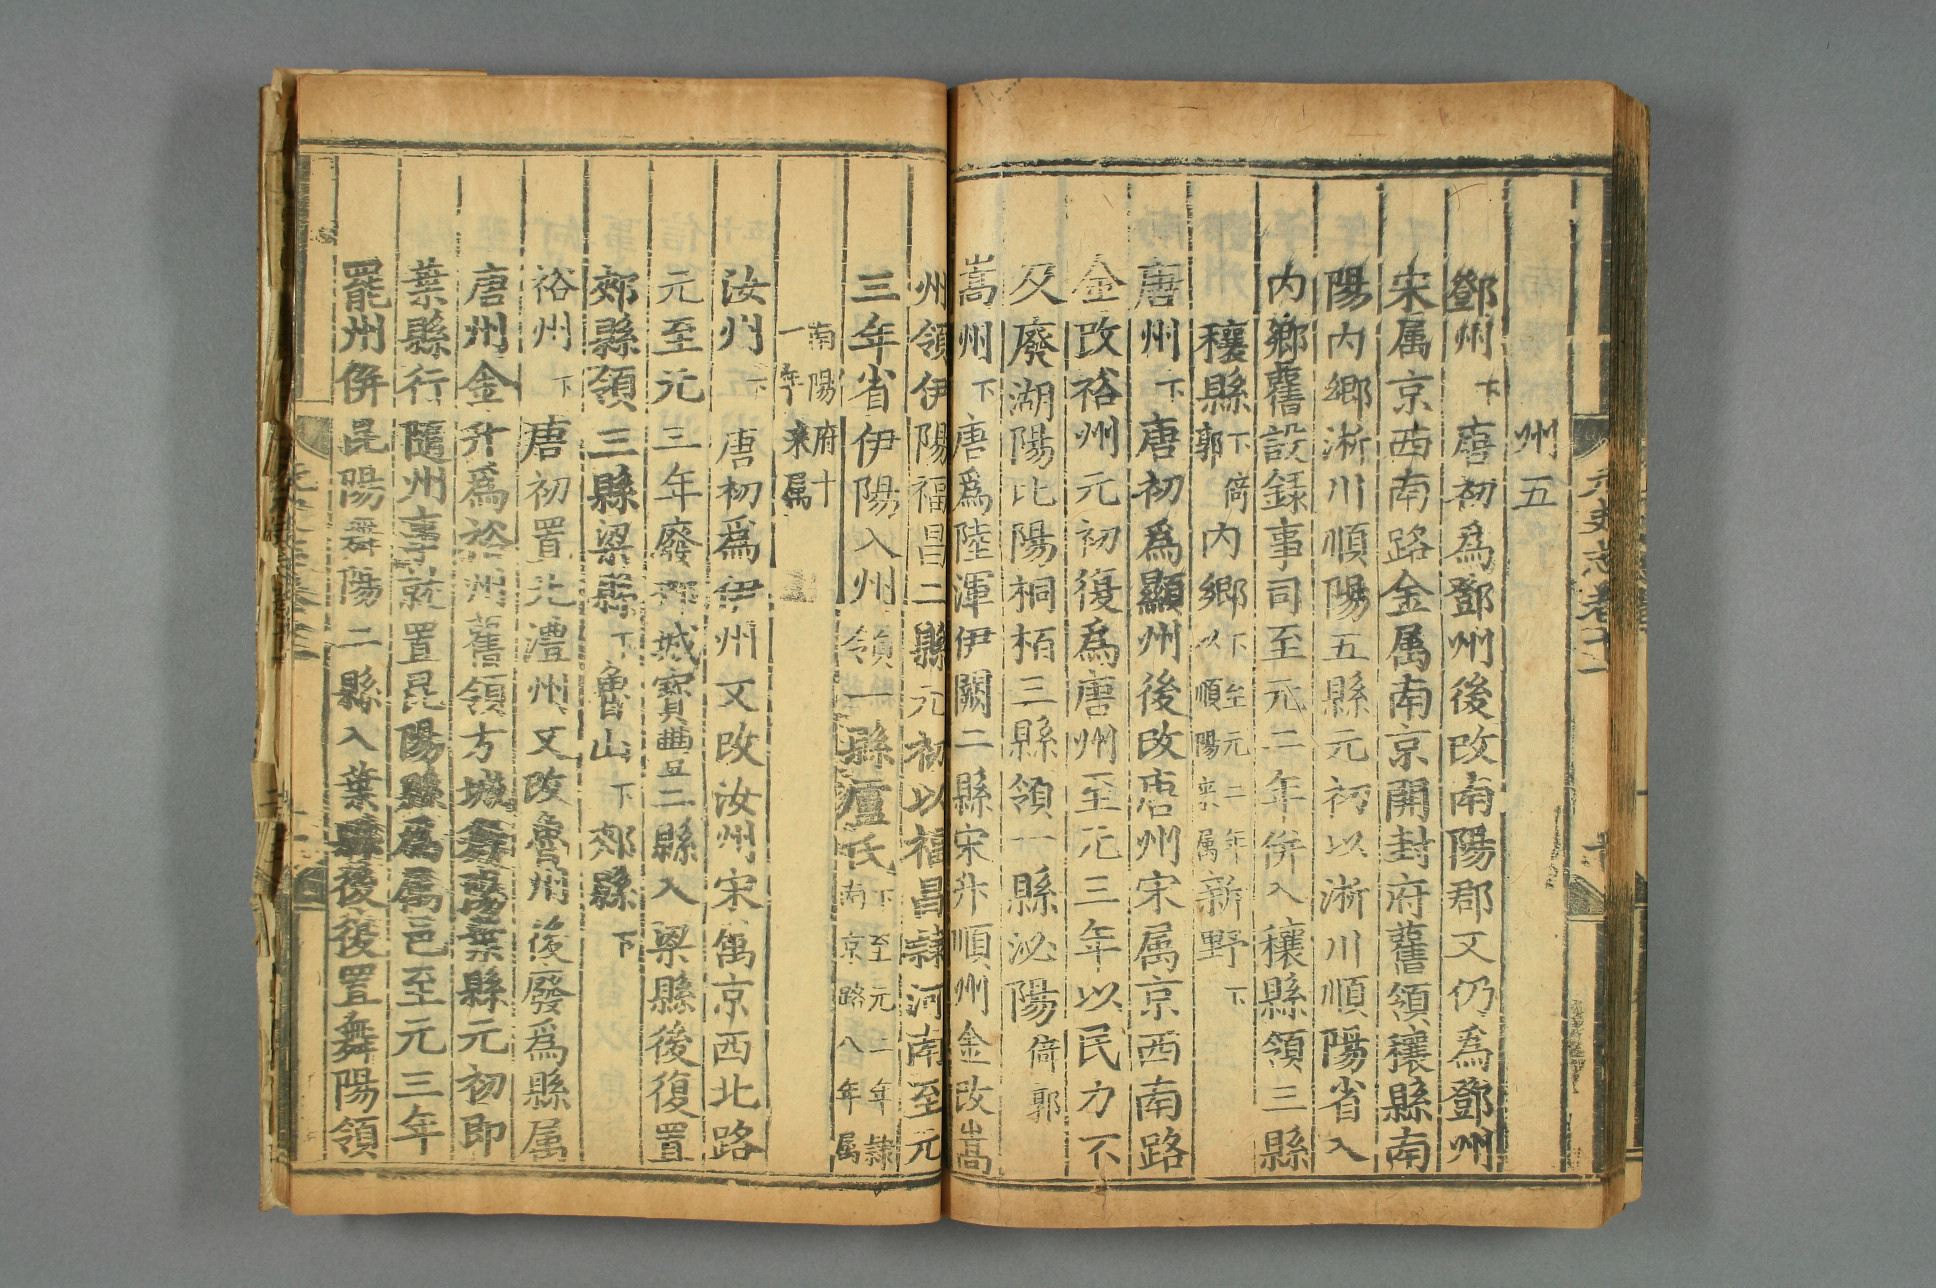 州五
鄧州下唐初爲鄧州後改南陽郡又仍爲鄧州
宋属京西南路金属南京開封府舊領穰縣南
陽内郷淅川順陽五縣元初以淅川順陽省入
内郷舊設録事司至元二年併入穰縣領三縣
穰縣下倚郭内郷下至元二年以順陽来属新野下
唐州下唐初爲顯州後改唐州宋属京西南路
金改裕州元初復爲唐州至元三年以民力不
及廢湖陽比陽桐栢三縣領一縣泌陽倚郭
嵩州下唐爲陸渾伊闕二縣宋升順州金改嵩
州領伊陽福昌二縣元初以福昌隷河南至元
三年省伊陽入州領一縣盧氏下至元二年隷南京路八年属
南陽府十一年来属
汝州下唐初爲伊州又改汝州宋属京西北路
元至元三年廢郟城寳豊二縣入梁縣後復置
郟縣領三縣梁縣下魯山下郟縣下
裕州下唐初置北澧州又改魯州後廢爲縣属
唐州金升爲裕州舊領方城舞陽葉縣元初即
葉縣行隨州事就置昆陽縣爲属邑至元三年
罷州併昆陽舞陽二縣入葉縣後復置舞陽領
元史志卷十一